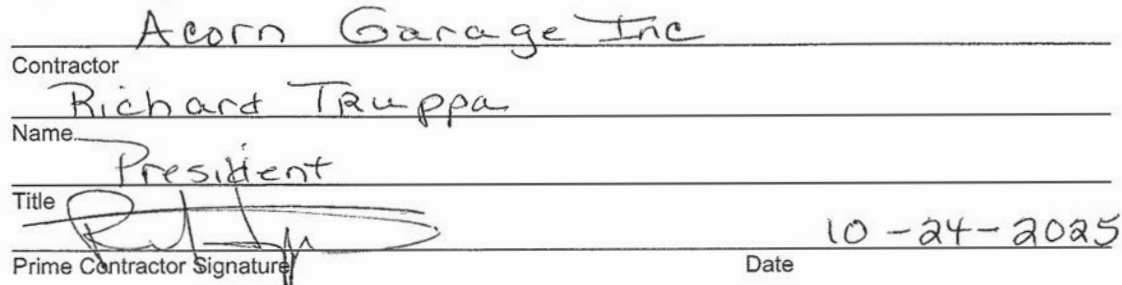 Acorn Garage Inc
Contractor
Richard Truppa
Name
President
Title
10-24-2025
Prime Contractor Signature Date